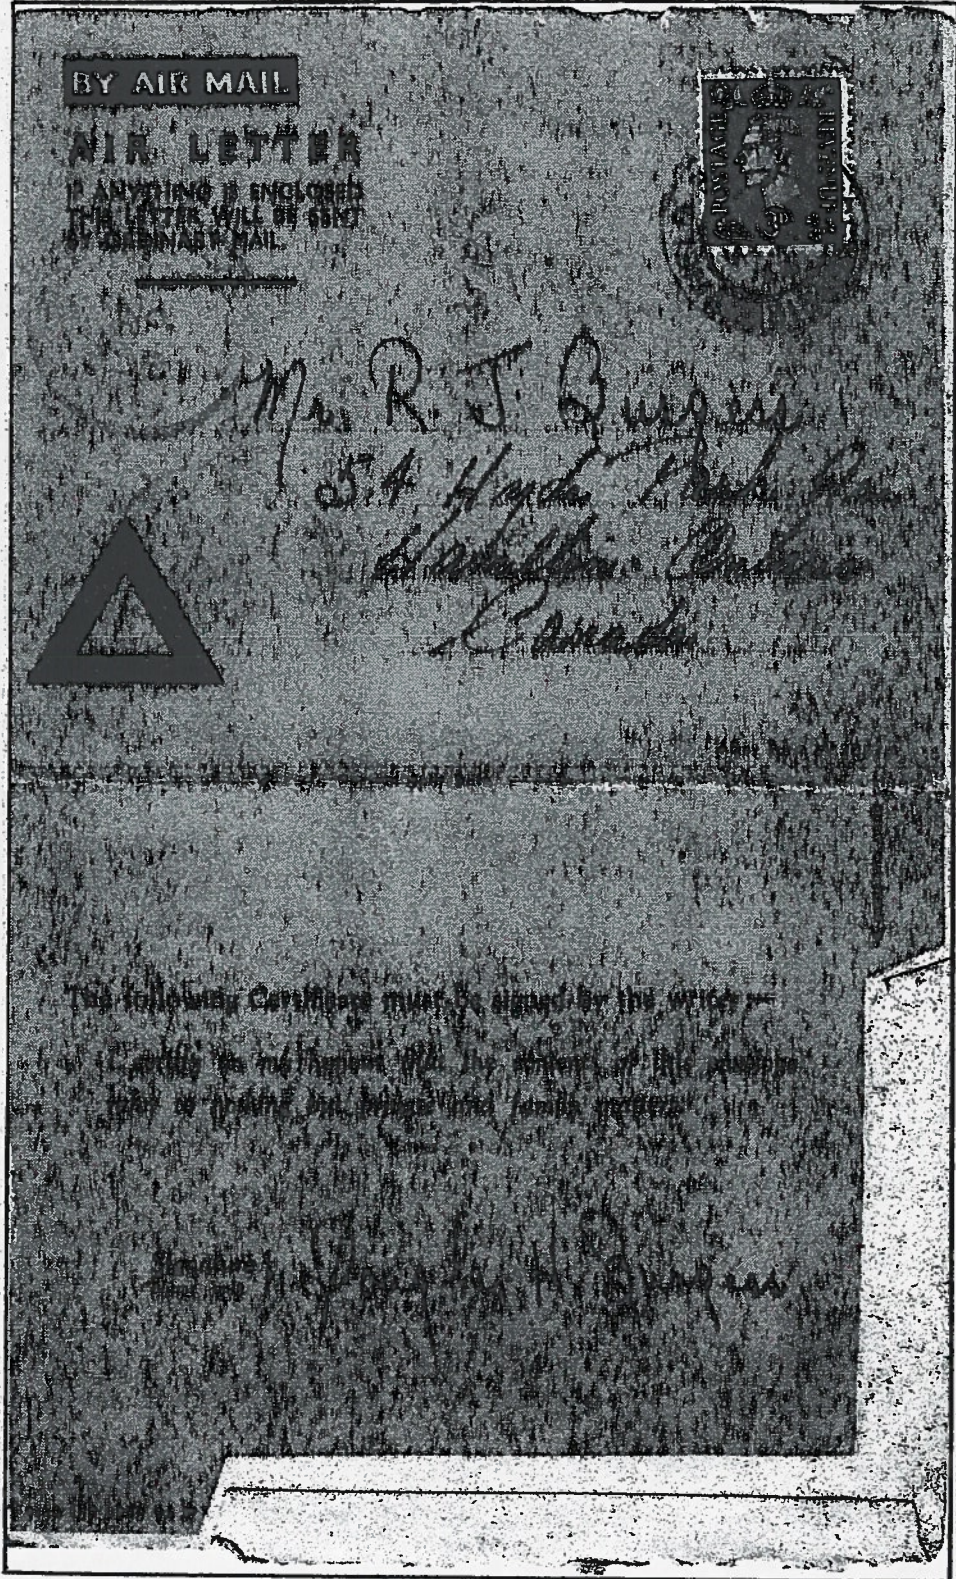 BY AIR MAIL
AIR LETTER
IF ANYTHING IS ENCLOSED
THIS LETTER WILL BE SENT
BY ORDINARY MAIL.
POSTAGE REVENUE
3D
Mr. R. J. Burgess
54 Hyde Park
Hamilton Ontario
Canada
The following Certificate must be signed by the writer :—
I certify on my honour that the contents of this envelope
refer to nothing but private and family matters.
Signature
Burgess